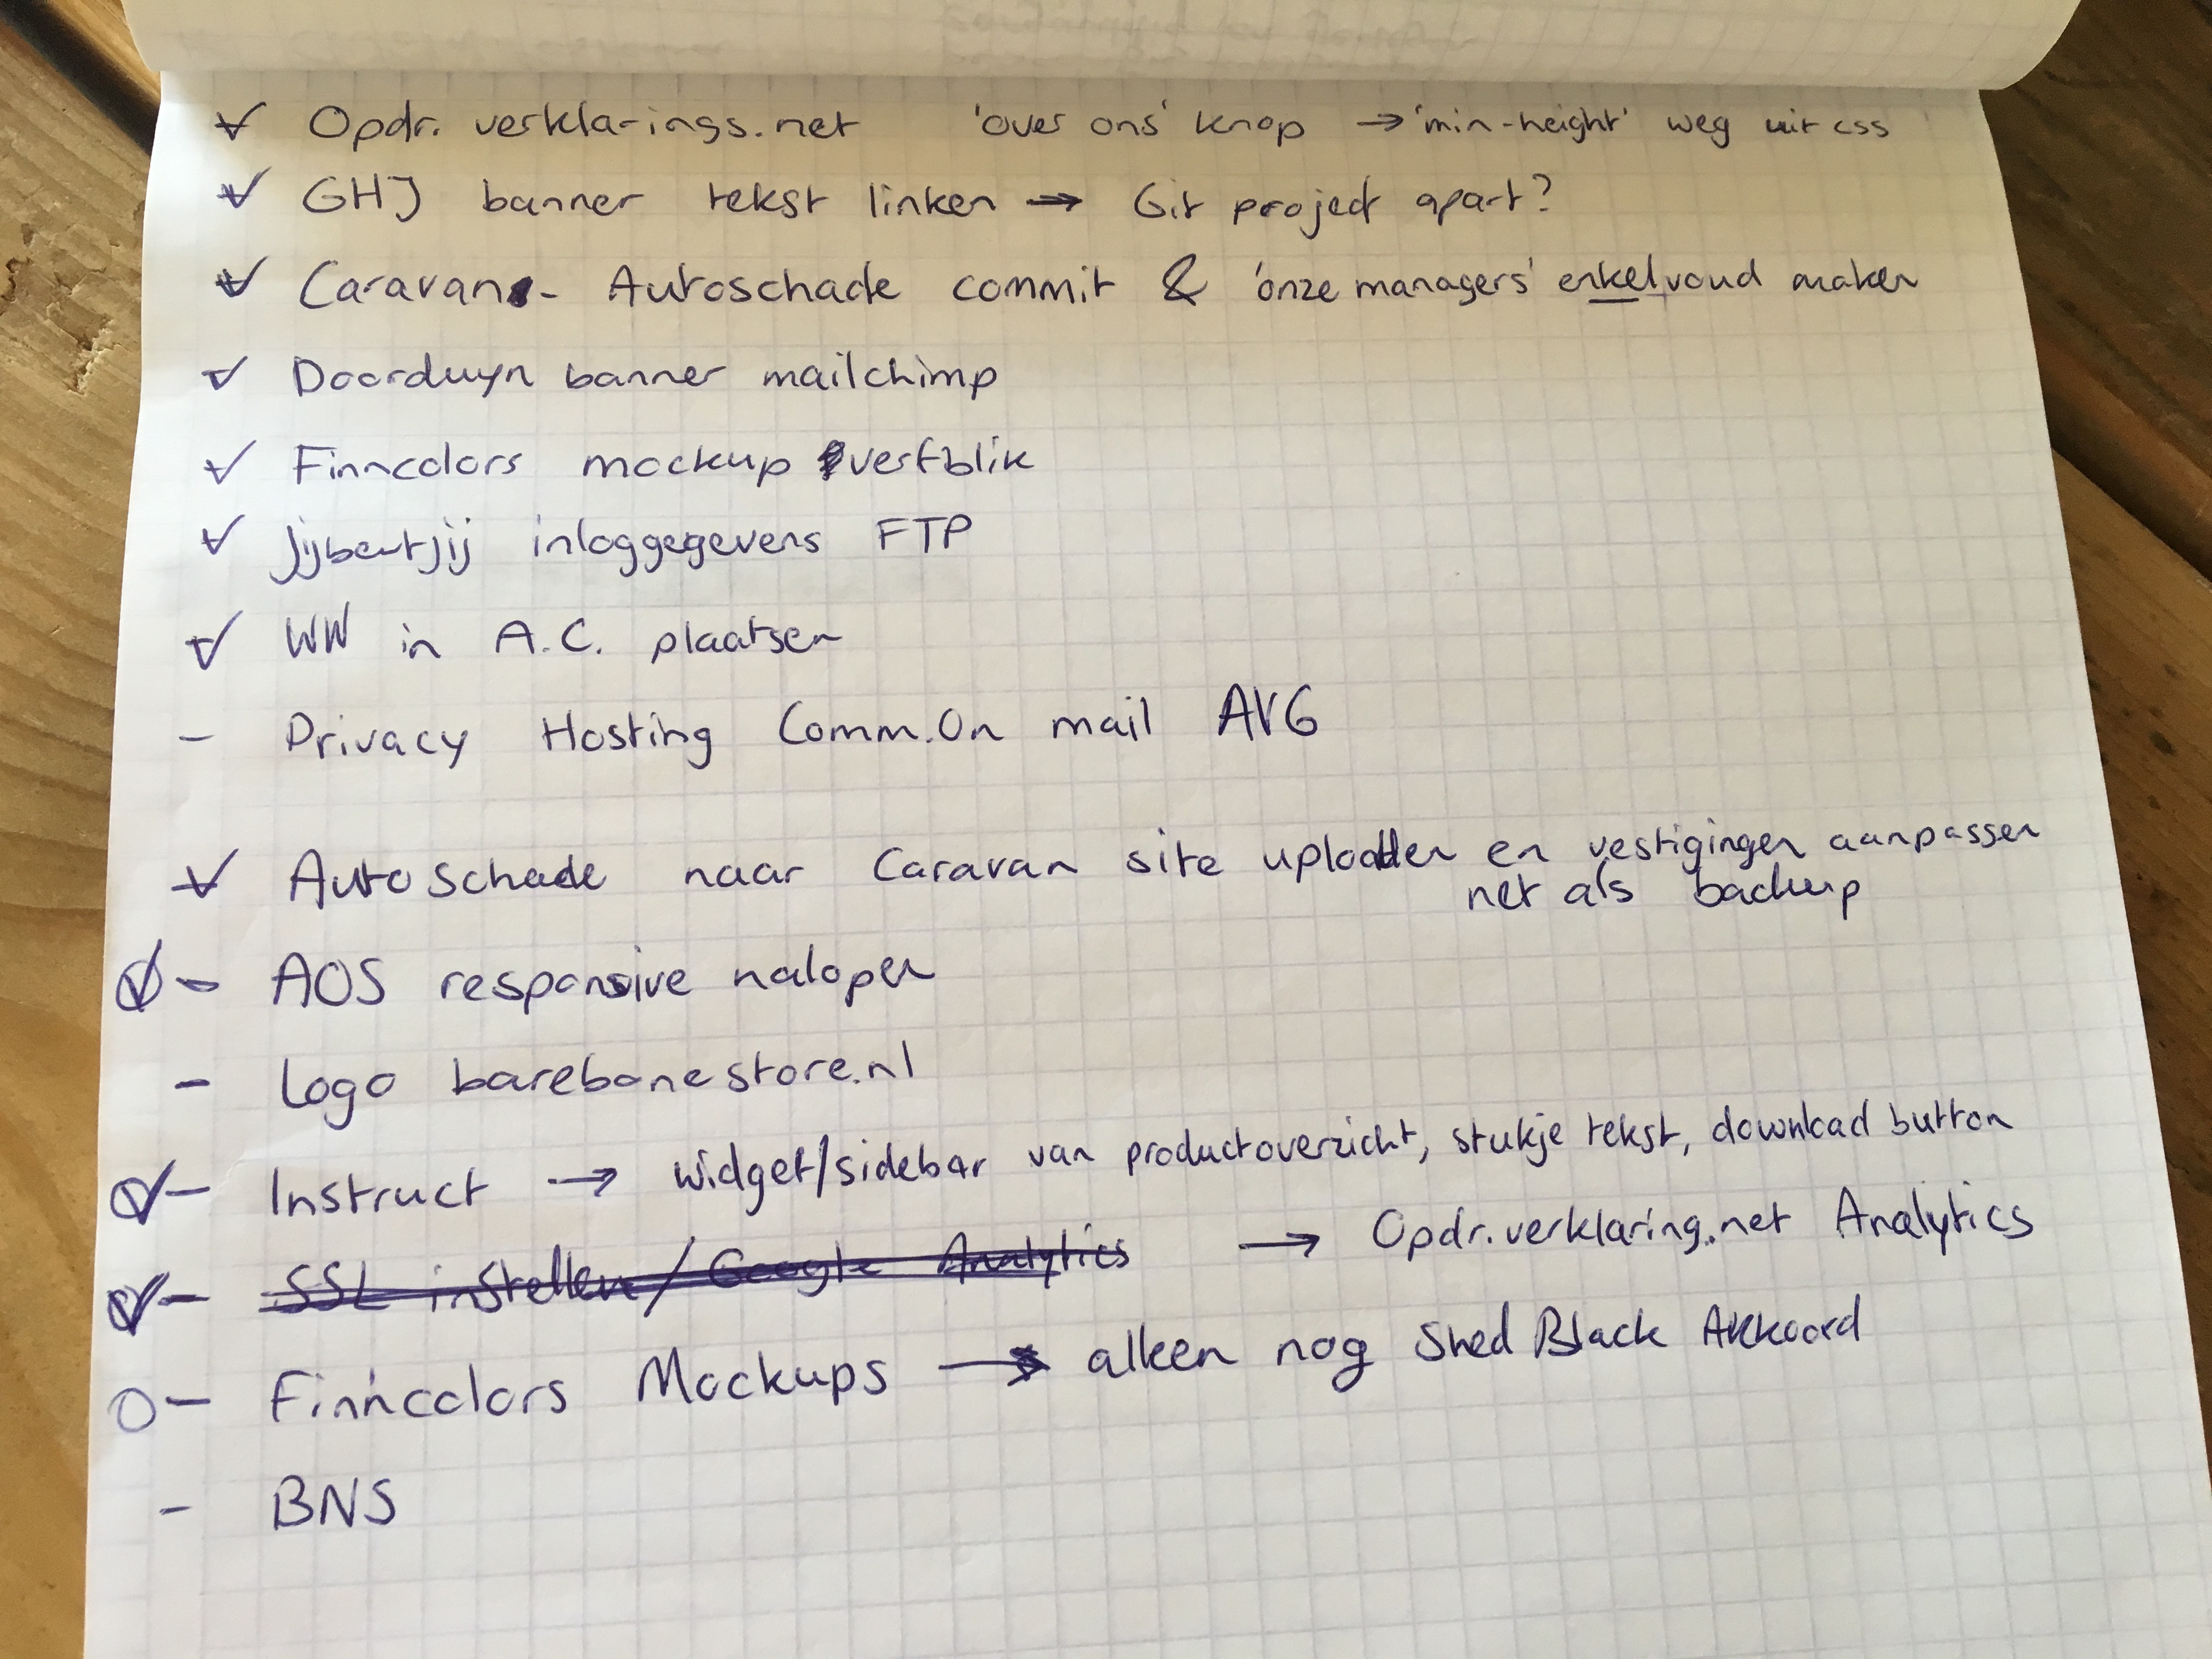 ✓ Opdr. verklarings.net 'over ons' knop → 'min-height' weg uit css
✓ GHJ banner tekst linken → Git project apart?
✓ Caravan - Autoschade commit & 'onze managers' enkelvoud maken
✓ Doorduyn banner mailchimp
✓ Finncolors mockup verfblik
✓ Jijbentjij inloggegevens FTP
✓ WW in A.C. plaatsen
- Privacy Hosting Comm.On mail AVG
✓ Autoschade naar Caravan site uploaden en vestigingen aanpassen
net als backup
✓ - AOS responsive nalopen
- Logo barebonestore.nl
✓ - Instruct → widget/sidebar van productoverzicht, stukje tekst, download button
✓ - SSL instellen / Google Analytics → Opdr.verklaring.net Analytics
O - Finncolors Mockups → alleen nog Shed Black Akkoord
- BNS